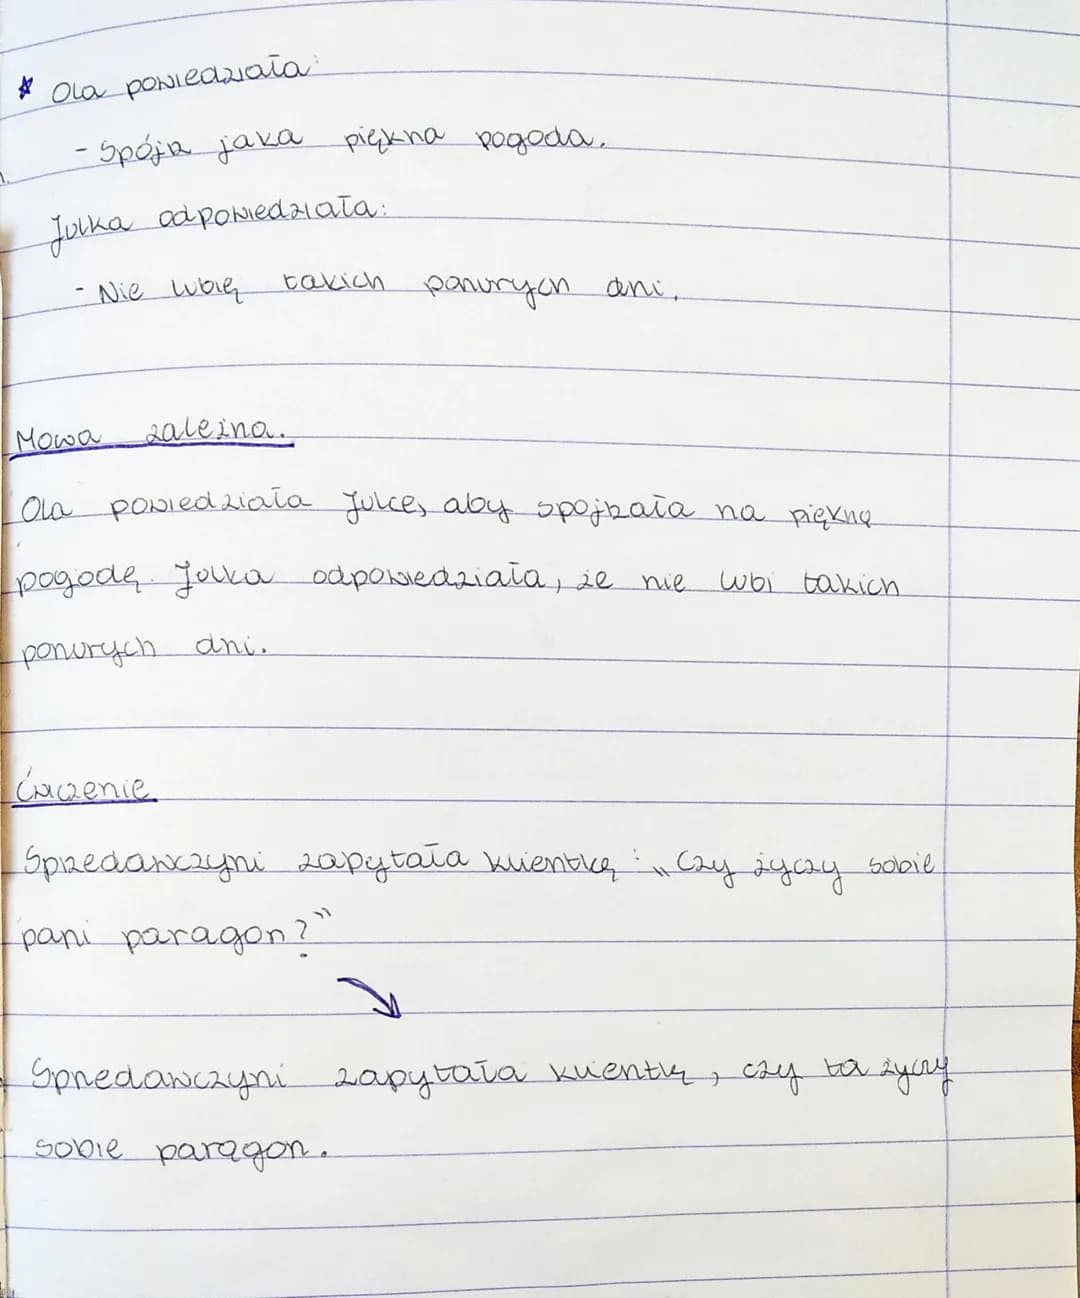 * Ola powiedziała:
- Spójrz jaka piękna pogoda.
Julka odpowiedziała:
- Nie lubię takich ponurych dni.
Mowa zależna.
Ola powiedziała Julce, aby spojrzała na piękną
pogodę. Julka odpowiedziała, że nie lubi takich
ponurych dni.
Ćwiczenie
Sprzedawczyni zapytała klientkę: „Czy życzy sobie
pani paragon?”
Sprzedawczyni zapytała klientkę, czy ta życzy
sobie paragon.